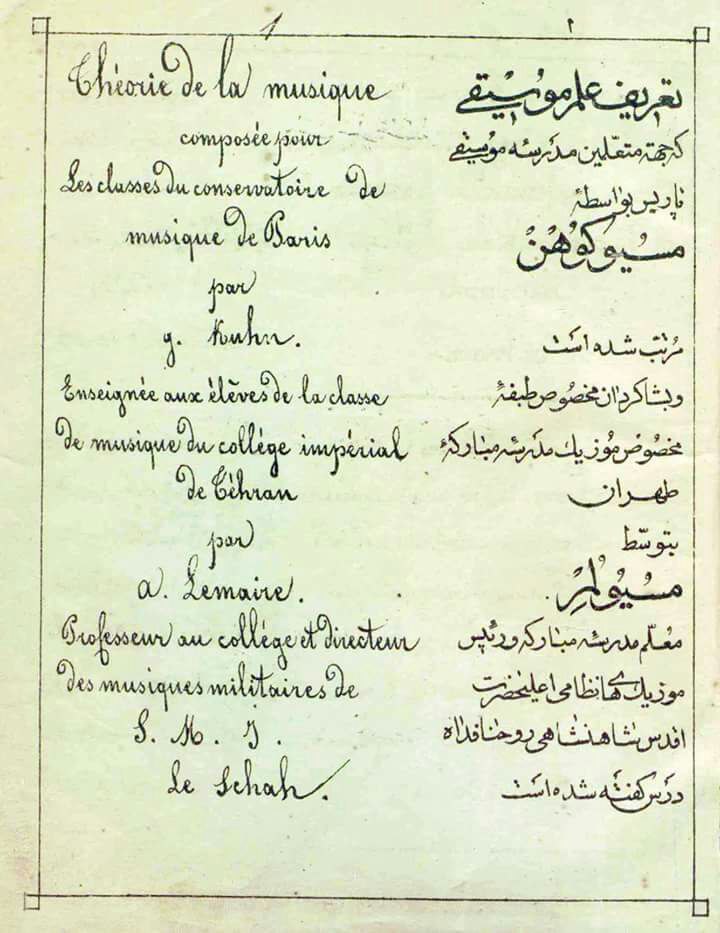 1
Théorie de la musique
composée pour
Les classes du conservatoire de
musique de Paris
par
g. Kuhn.
Enseignée aux élèves de la classe
de musique du collége impérial
de Téhran
par
a. Lemaire.
Professeur au collége et directeur
des musiques militaires de
S. M. I.
Le Schah.
۱
تعریف علم موسیقی
که جهة متعلّمین مدرسه موسیقی
پاریس بواسطهٔ
مسیو کوهن
مرتب شده است
و بشاکردان مخصوص طبقهٔ
مخصوص موزیك مدرسه مبارکهٔ
طهران
بتوسّط
مسیو لمر
معلّم مدرسه مبارکه و رئیس
موزیك های نظامی اعلیحضرت
اقدس شاهنشاهی روحنا فداه
درس کفته شده است